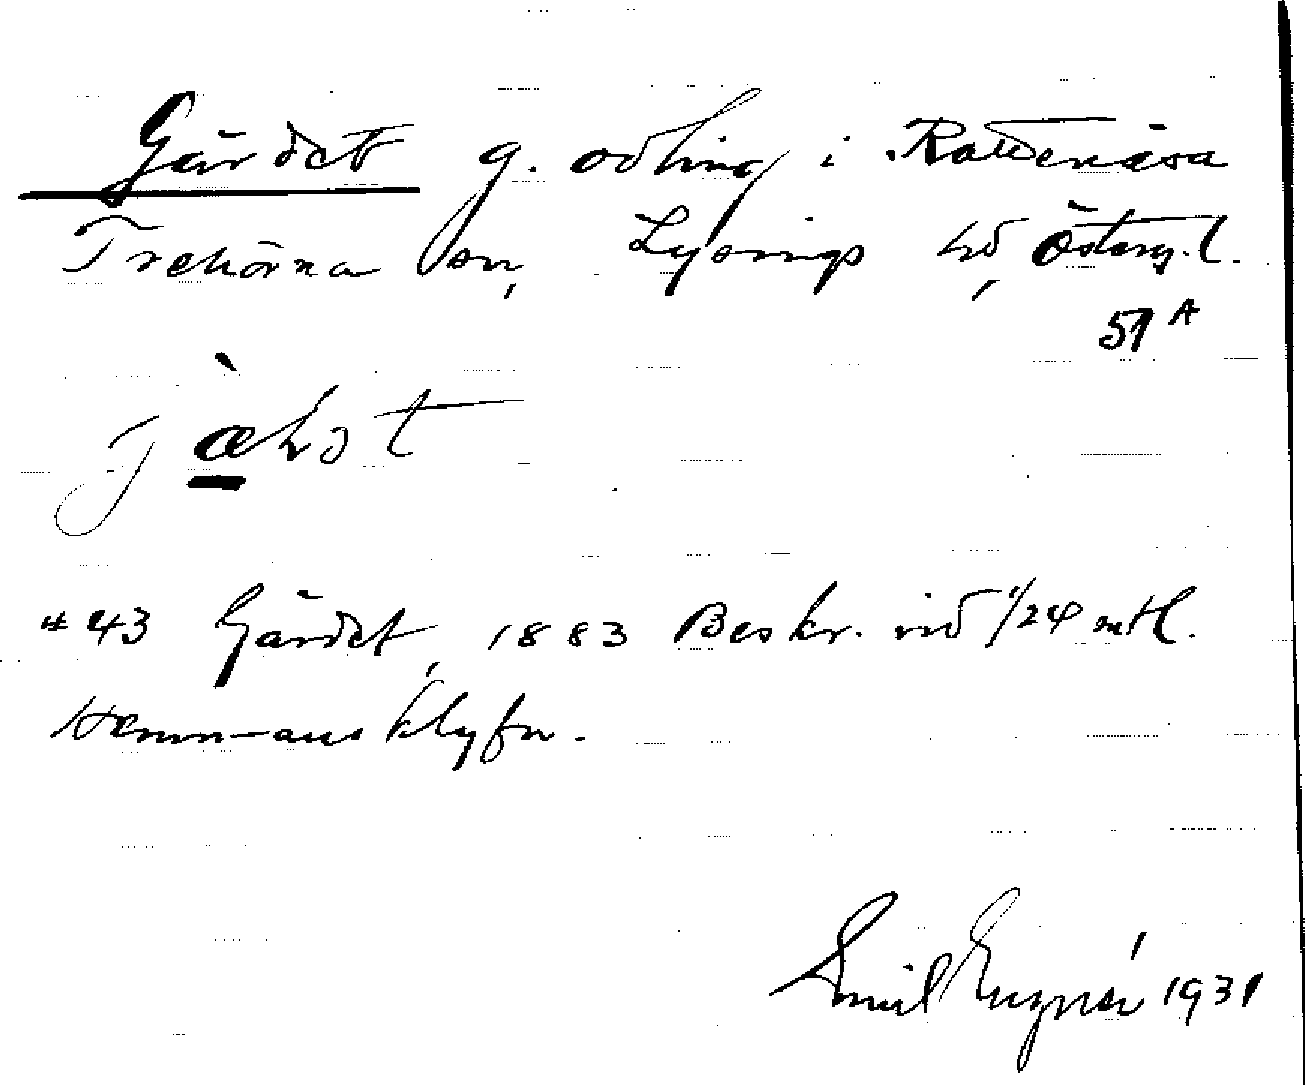 Gärdet g. odling i Rättenåsa
Trehörna sn, Lysings hd, Österg. l.
51 A
jæ̀ḷət
# 43 Gärdet, 1883 Beskr. vid 1/24 mtl.
Hemmansklyfn.
Emil 1931